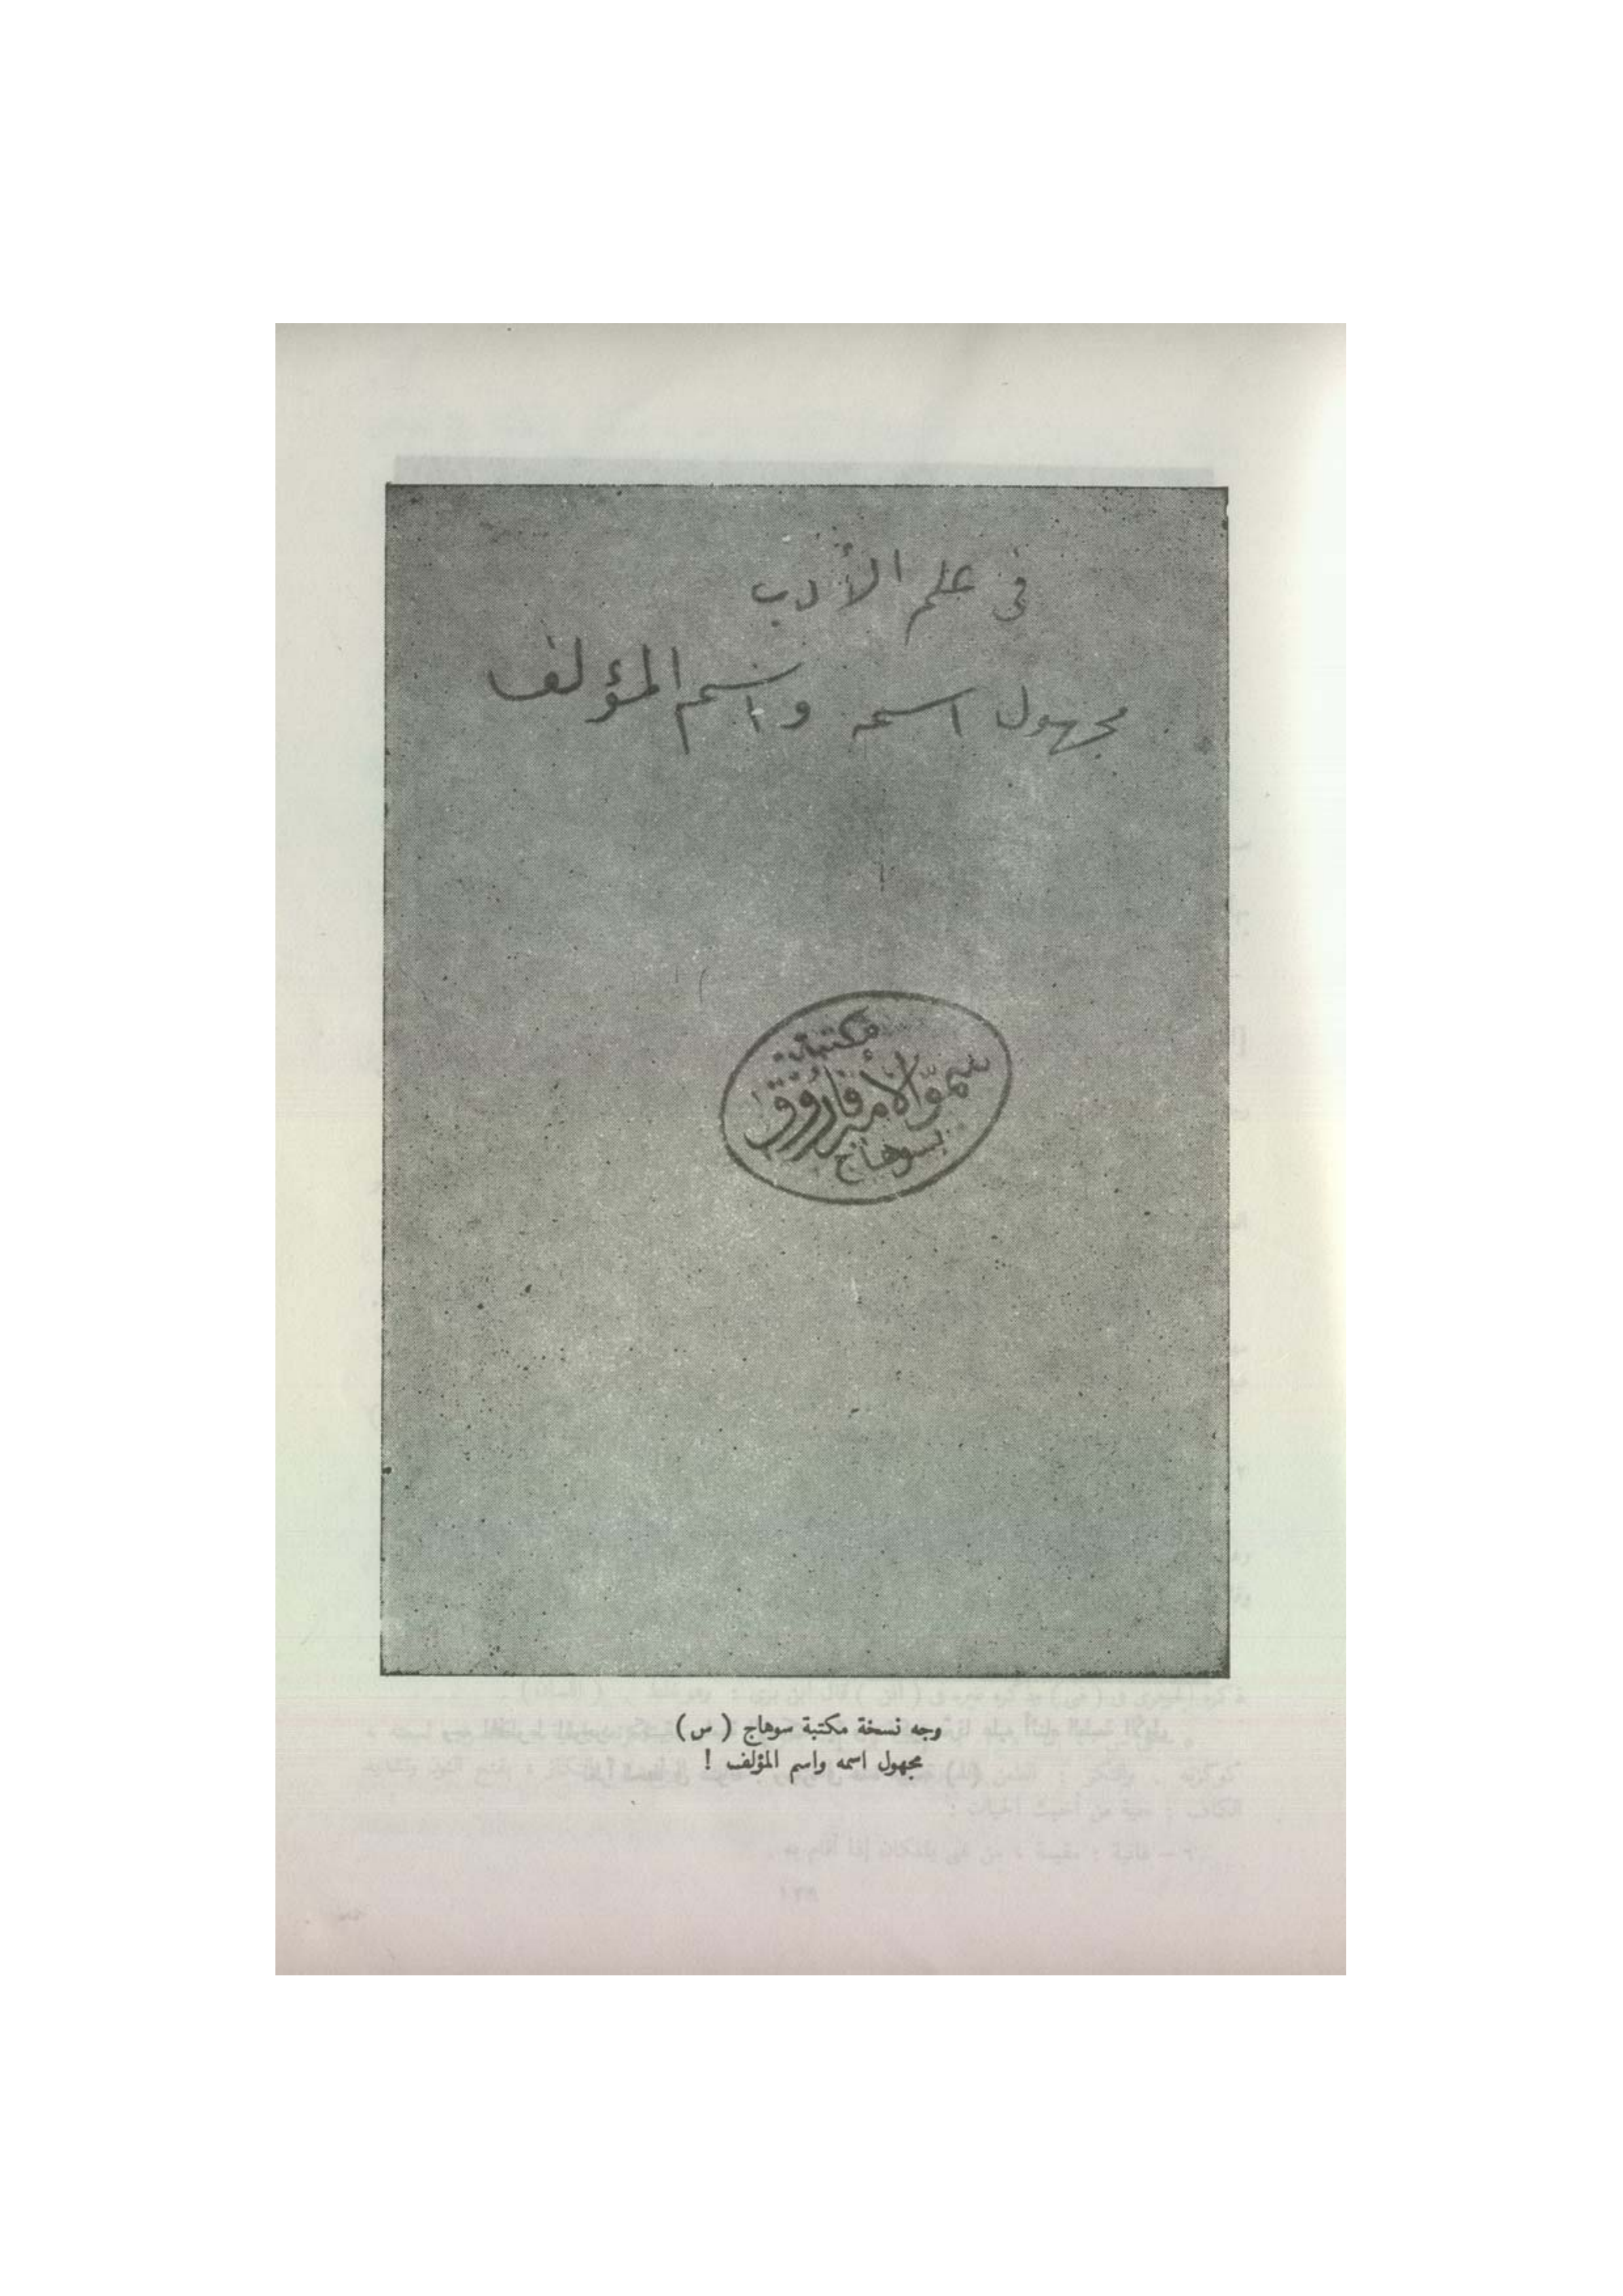 في علم الأدب
مجهول اسمه واسم المؤلف
مكتبة
سمو الأمير فاروق
بسوهاج
وجه نسخة مكتبة سوهاج ( س )
مجهول اسمه واسم المؤلف !